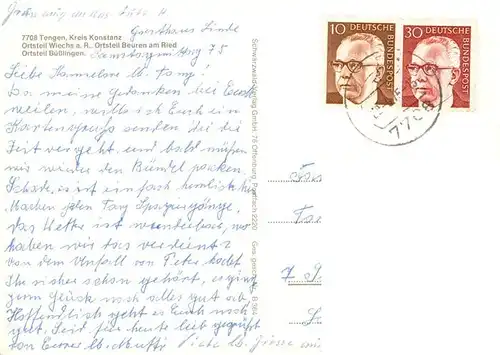 Gasthaus Linde
7708 Tengen, Kreis Konstanz
Ortsteil Wiechs a. R., Ortsteil Beuren am Ried
Ortsteil Büßlingen.
Samstagmittag 75
Liebe Hannelore u. Fam!
Da meine Gedanken bei Euch
weilen, will ich Euch ein
Kartengruss senden. Die
Zeit vergeht und bald müssen
wir wieder den Bündel packen.
Schade, es ist einfach herrlich hier
Machen jeden Tag Spaziergänge,
das Wetter ist wunderbar, wo
haben wir das verdient?
Von dem Unfall von Peter habt
Ihr sicher schon gehört, es ging
zum Glück noch alles gut ab.
Hoffentlich geht es Euch noch
gut, Seid für heute lieb gegrüßt
von Eurer
Schwarzwald-Verlag GmbH, 76 Offenburg, Postfach 2220
Ges. gesch. B 984
10 DEUTSCHE BUNDESPOST
30 DEUTSCHE BUNDESPOST
7708
7